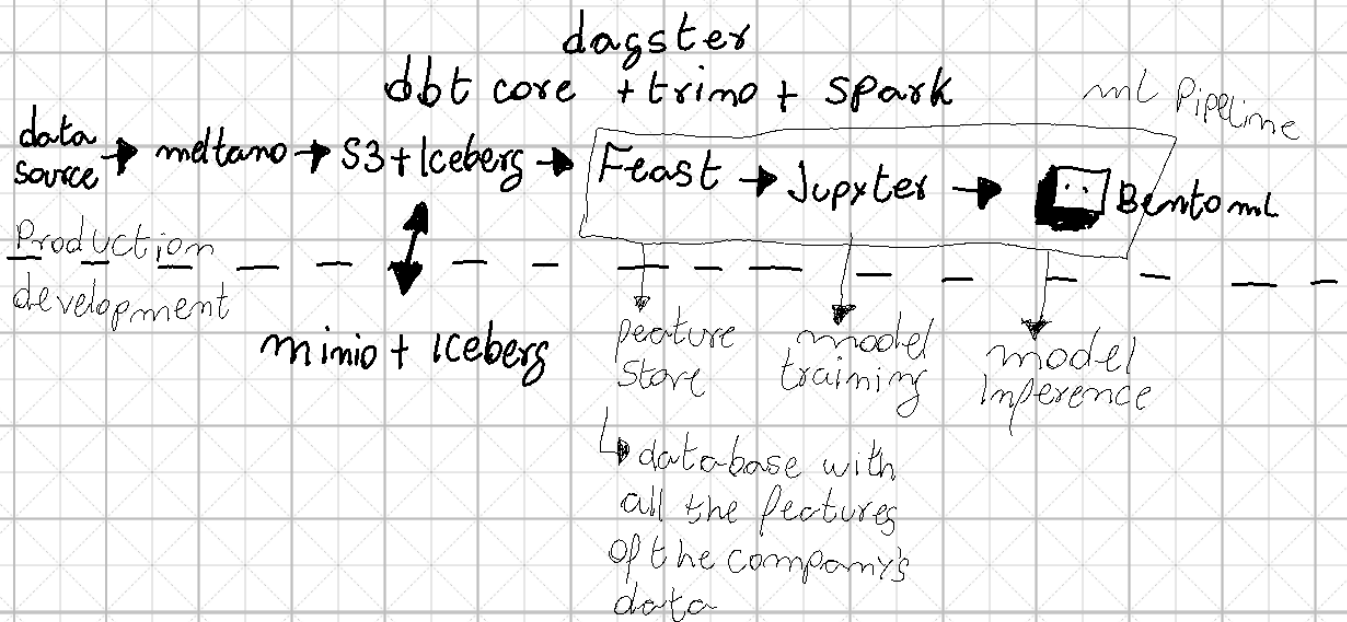 dagster
dbt core + trino + spark
ml Pipeline
data source → meltano → S3 + Iceberg → Feast → Jupyter → Bentoml
Production
development
minio + Iceberg
feature store
model training
model Inference
↳ database with
all the features
of the company's
data